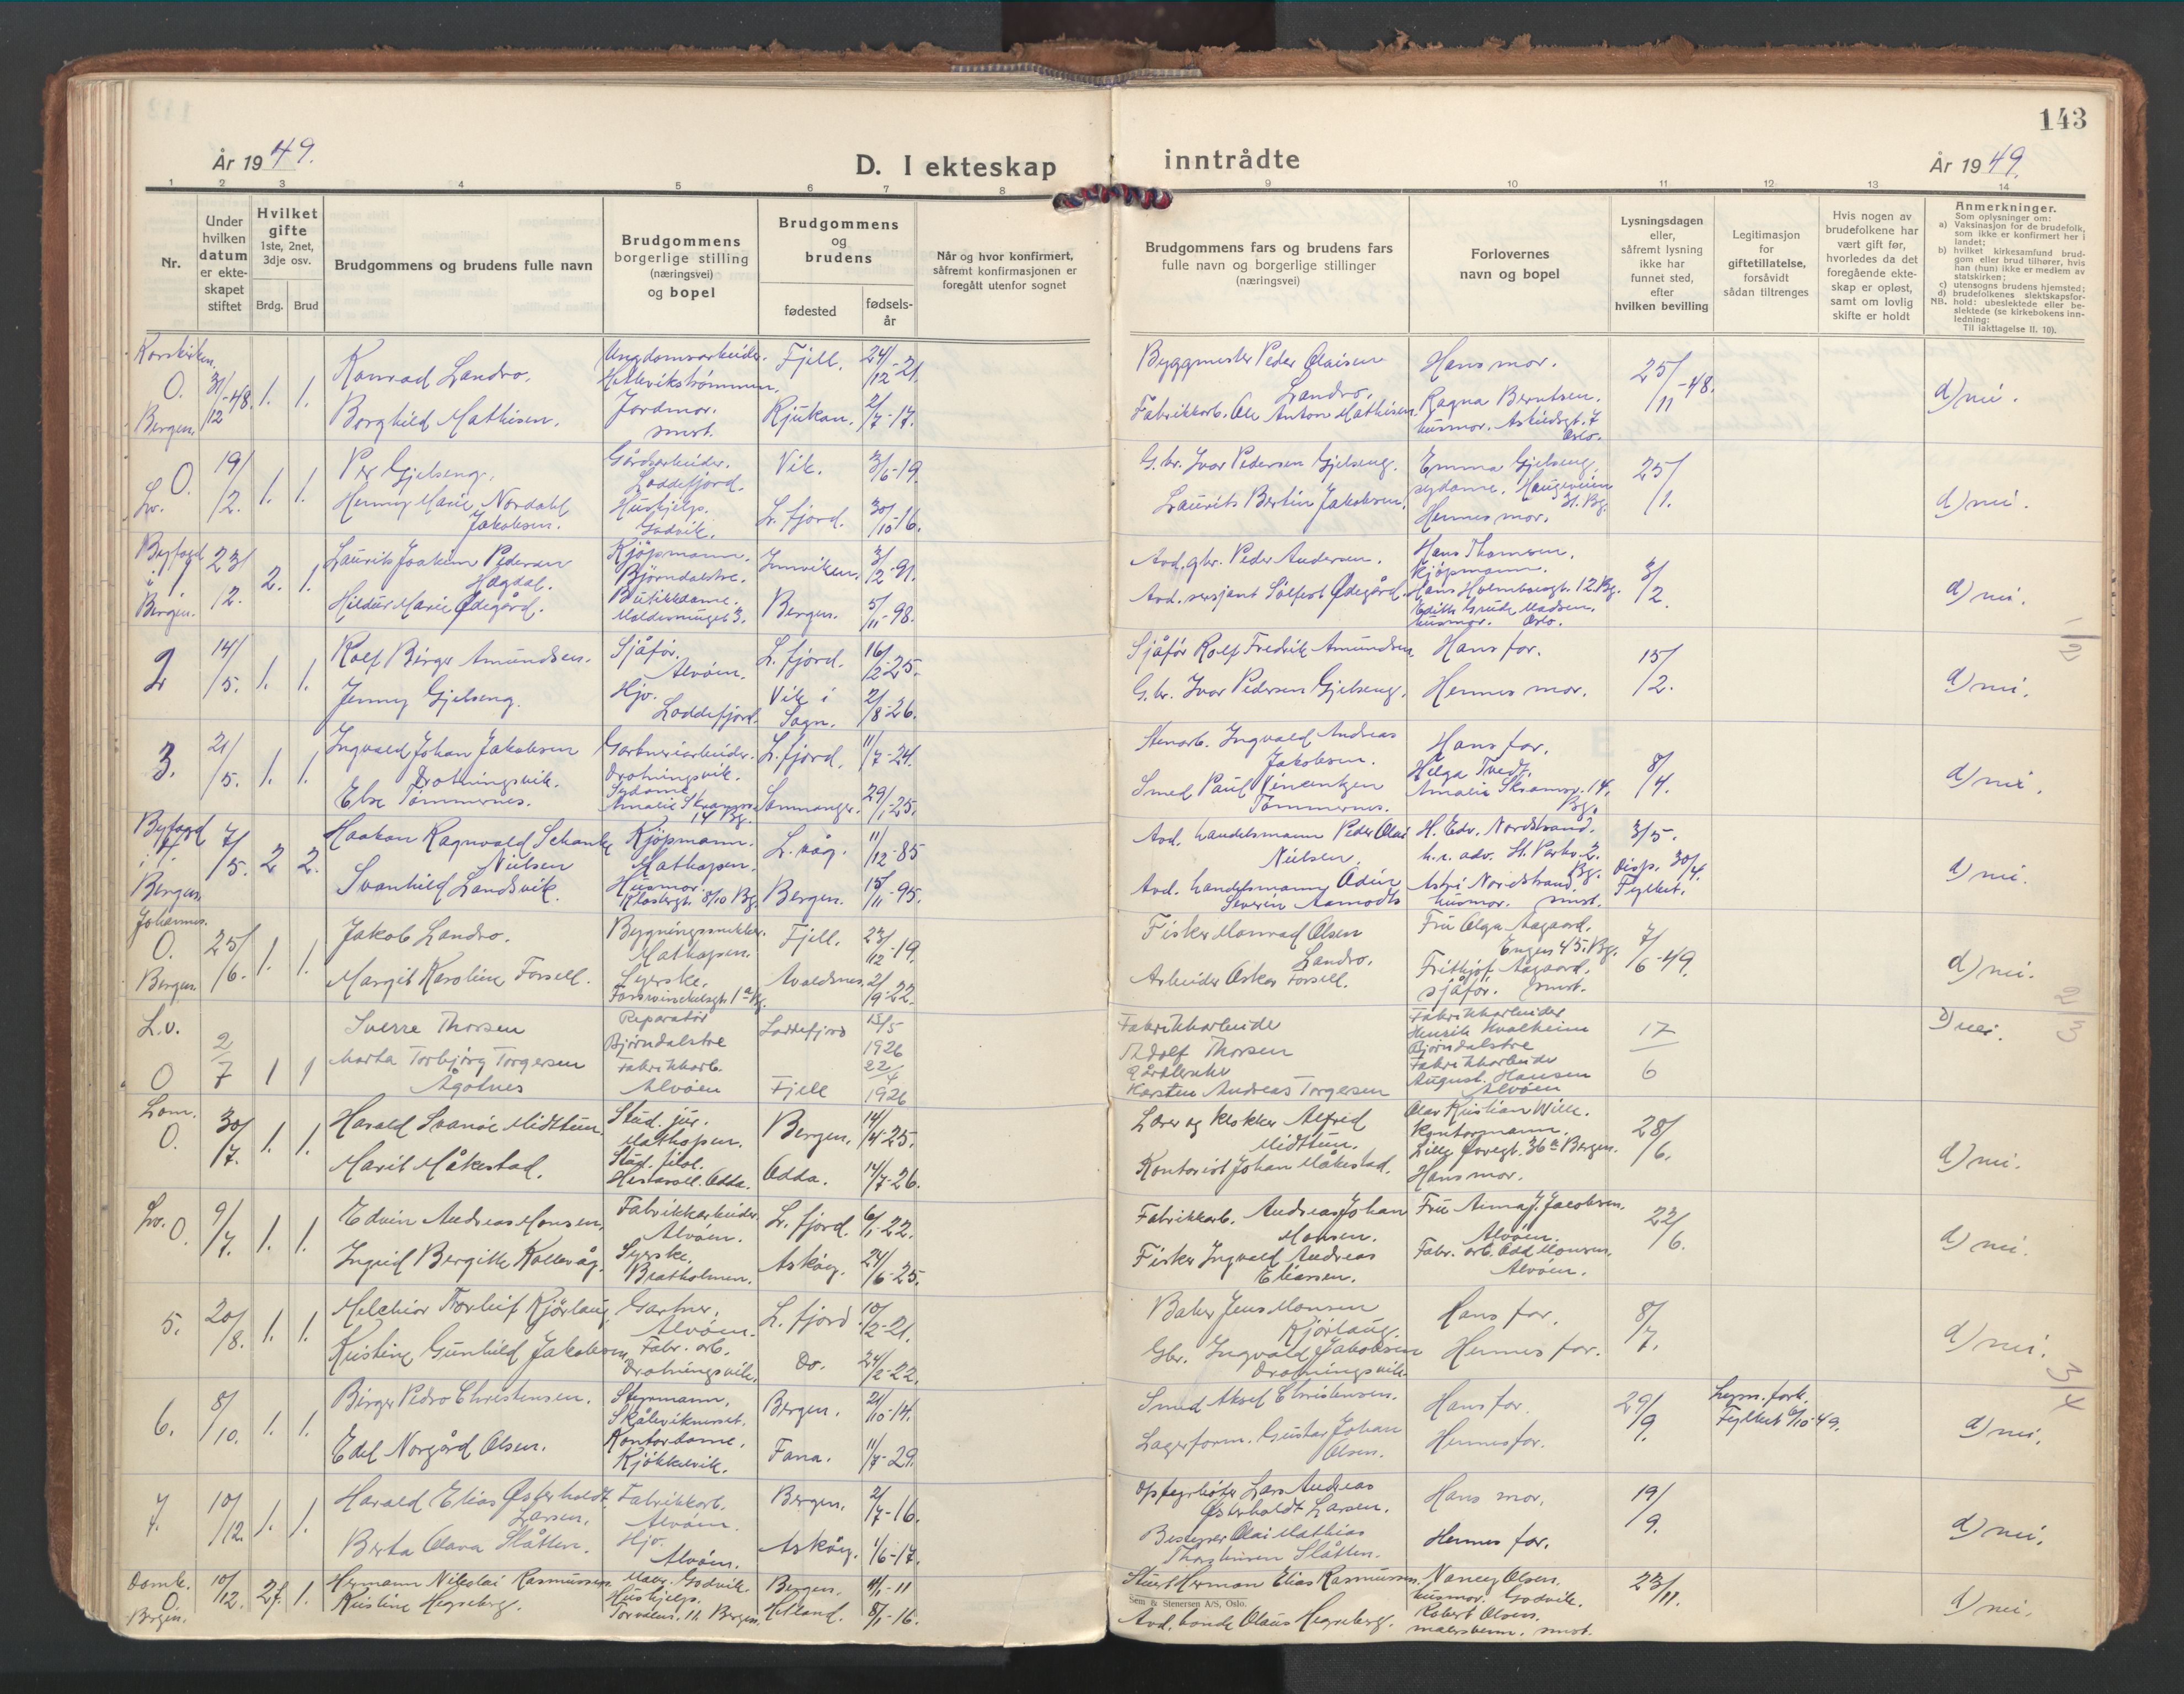 143
År 1949.
D. I ekteskap
inntrådte
År 1949.
1 2 3 4 5 6 7 8 9 10 11 12 13 14
Nr.
Under hvilken datum er ekteskapet stiftet
Hvilket gifte
1ste, 2net, 3dje osv.
Brdg. Brud
Brudgommens og brudens fulle navn
Brudgommens borgerlige stilling (næringsvei) og bopel
Brudgommens og brudens
fødested
fødselsår
Når og hvor konfirmert, såfremt konfirmasjonen er foregått utenfor sognet
Brudgommens fars og brudens fars fulle navn og borgerlige stillinger (næringsvei)
Forlovernes navn og bopel
Lysningsdagen eller, såfremt lysning ikke har funnet sted, efter hvilken bevilling
Legitimasjon for giftetillatelse, forsåvidt sådan tiltrenges
Hvis nogen av brudefolkene har vært gift før, hvorledes da det foregående ekteskap er opløst, samt om lovlig skifte er holdt
Anmerkninger.
Som oplysninger om:
a) Vaksinasjon for de brudefolk, som ikke er konfirmert her i landet;
b) hvilket kirkesamfund brudgom eller brud tilhører, hvis han (hun) ikke er medlem av statskirken;
c) utensogns brudens hjemsted;
d) brudefolkenes slektskapsforhold: ubeslektede eller beslektede (se kirkebokens innledning:
NB. Til iakttagelse II. 10).
Korskirken, O. Bergen. 31/12-48. 1. 1.
Konrad Landro. Ungdomsarbeider. Hetlevikstrømmen. Fjell. 24/12-21. Byggmester Peder Olaisen Landro. Hans mor. 25/11-48. d) nei.
Borghild Mathisen. Jordmor. smst. Rjukan. 2/7-17. Fabrikkarb. Ole Anton Mathisen. Ragna Berntsen. husmor. Oslo.
Lv. O. 19/2. 1. 1.
Per Gjelseng. Gårdsarbeider. Loddefjord. Vik. 3/6-19. G.br. Ivar Pedersen Gjelseng. Emma Gjelseng, sydame, Haugeveien 31. Bg. 25/1. d) nei.
Henny Marie Nordahl Jakobsen. Hushjelp. Godvik. L.fjord. 30/10-16. Laurits Bertin Jakobsen. Hennes mor.
Byfogd i Bergen. 23/2. 2. 1.
Laurits Joakim Pedersen Hagdal. Kjøpmann. Bjørndalstre. Innviken. 3/2-91. Avd. gbr. Peder Andersen. Hans Thomsen. kjøpmann. Hans Holmboesgt. 12 Bg. 3/2. d) nei.
Hildur Marie Ødegård. Butikkdame. Bergen. 5/11-98. Avd. sersjant Sølfest Ødegård. Edith Madsen. husmor. Oslo.
2 14/5. 1. 1.
Rolf Birger Amundsen. Sjåfør. Alvøen. L.fjord. 16/2-25. Sjåfør Rolf Fredrik Amundsen. Hans far. 15/2. d) nei.
Jenny Gjelseng. Hjv. Loddefjord. Vik i Sogn. 2/8-26. G.br. Ivar Pedersen Gjelseng. Hennes mor.
3. 21/5. 1. 1.
Ingvald Johan Jakobsen Drotningsvik. Gartneriarbeider. Drotningsvik. L.fjord. 11/7-24. Stenarb. Ingvald Andreas Jakobsen. Hans far. 8/4. d) nei.
Else Tømmernes. Sydame Amalie Skramsv. 14 Bg. Samnanger. 29/1-25. Smed Paul Vincentzen Tømmernes. Helga Tvedt. Amalie Skramsv. 14. Bg.
Byfogd i Bergen. 7/5. 2 2.
Haakon Ragnvald Schanke Nielsen Kjøpmann. Mathopen. L.våg. 11/12-85 Avd. handelsmann Peder Olai Nielsen. H. Edv. Nordstrand. h.r. adv. St. Parkv. 2. Bg. 3/5. Disp. 30/4. Fylket. d) nei.
Svanhild Landsvik. Husmor. Klostergt. 8/10 Bg. Bergen. 15/11-95. Avd. handelsmann Odin Severin Aamodts Astri Nordstrand. husmor. smst.
Johannes. O. Bergen. 25/6. 1. 1.
Jakob Landro. Bygningssnekker. Mathopen. Fjell. 23/12-19. Fisker Monrad Olsen Landro. Fru Olga Aagaard. Engen 45. Bg. 7/6-49. d) nei.
Margit Karoline Forsell. Syerske. Avaldsnes. 2/9-22. Arbeider Oskar Forsell. Frithjof Aagaard. sjåfør. smst.
L.v. O 2/7 1 1
Sverre Thorsen Reparatør Bjørndalstre Loddefjord 15/5 1926 Fabrikkarbeider Adolf Thorsen Fabrikkarbeider Henrik Hvalheim Bjørndalstre 17/6 d) nei.
Marta Torbjørg Torgersen Ågotnes Fabrikkarb. Alvøen Fjell 22/4 1926 Karsten Andreas Torgersen Fabrikkarbeider August Hansen Alvøen
Lom. O. 30/7. 1. 1.
Harald Svanøe Midttun. Stud. jur. Mathopen. Bergen. 14/4-25. Lærer og klokker Alfred Midttun. Olav Kristian Wille. Kontormann. Lille Øvregt. 36a Bergen. 28/6. d) nei.
Marit Måkestad. Stud. filol. Odda. Odda. 14/7-26. Kontorist Johan Måkestad. Hans mor.
Lv. O. 9/7. 1. 1.
Edvin Andreas Monsen. Fabrikkarbeider Alvøen. L.fjord. 6/1-22. Fabrikkarb. Andreas Johan Monsen. Fru Anna J. Jacobsen. Alvøen. 22/6. d) nei.
Ingrid Bergitte Kollevåg. Syerske. Bratholmen. Askøy. 24/6-25. Fisker Ingvald Andreas Eliassen. Fabr. arb. Odd Monsen. Alvøen.
5. 20/8. 1. 1.
Melchior Torleif Kjørlaug Gartner. Alvøen. L.fjord. 10/2-21. Baker Jens Monsen Kjørlaug. Hans far. 8/7. d) nei.
Kristine Gunhild Jakobsen Fabr. arb. Drotningsvik. Do. 24/2-22. Gbr. Ingvald Jakobsen Drotningsvik. Hennes far.
6. 8/10. 1. 1.
Birger Pedro Christensen. Styrmann. Skåleviksneset. Bergen. 21/10-14. Smed Aksel Christensen. Hans far. 29/9. Lysn. fork. Fylket 6/10-49. d) nei.
Edel Norgård Olsen. Kontordame. Kjøkkelvik. Fana. 11/7-29. Lagerform. Gustav Johan Olsen. Hennes far.
7. 10/12. 1. 1.
Harald Elias Østerholdt Larsen. Fabrikkarb. Alvøen. Bergen. 2/7-16. Opfyrbøter Lars Andreas Østerholdt Larsen. Hans mor. 19/9. d) nei.
Berta Olava Slåtten. Hjv. Alvøen. Askøy. 1/6-17. Bestyrer Olai Mathias Thorsteinsen Slåtten. Hennes far.
Domk. O. Bergen. 10/12. 2f. 1.
Hermann Nikolai Rasmussen. Maler. Godvik. Bergen. 4/1-11 Stuert Herman Elias Rasmussen. Nancy Olsen. husmor. Godvik. 23/11. d) nei.
Kristine Hegreberg. Hushjelp. Bergen. Hetland. 8/1-16. Avd. bonde Olaus Hegreberg. Robert Olsen. malersvenn. smst.
Sem & Stenersen A/S, Oslo.